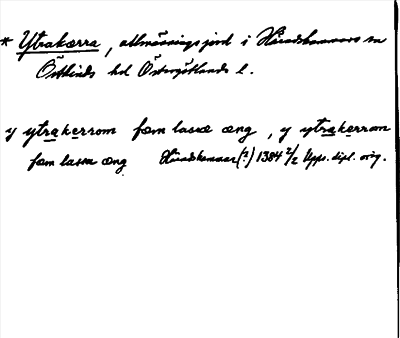 * Ytrakærra, allmänningsjord i Häradshammars sn
Östkinds hd Östergötlands l.
y ytrakerrom fæm lassa æng, y ytrakerrom
fæm lassa æng Häradshammar (?) 1384 2/2 Upps. dipl. orig.